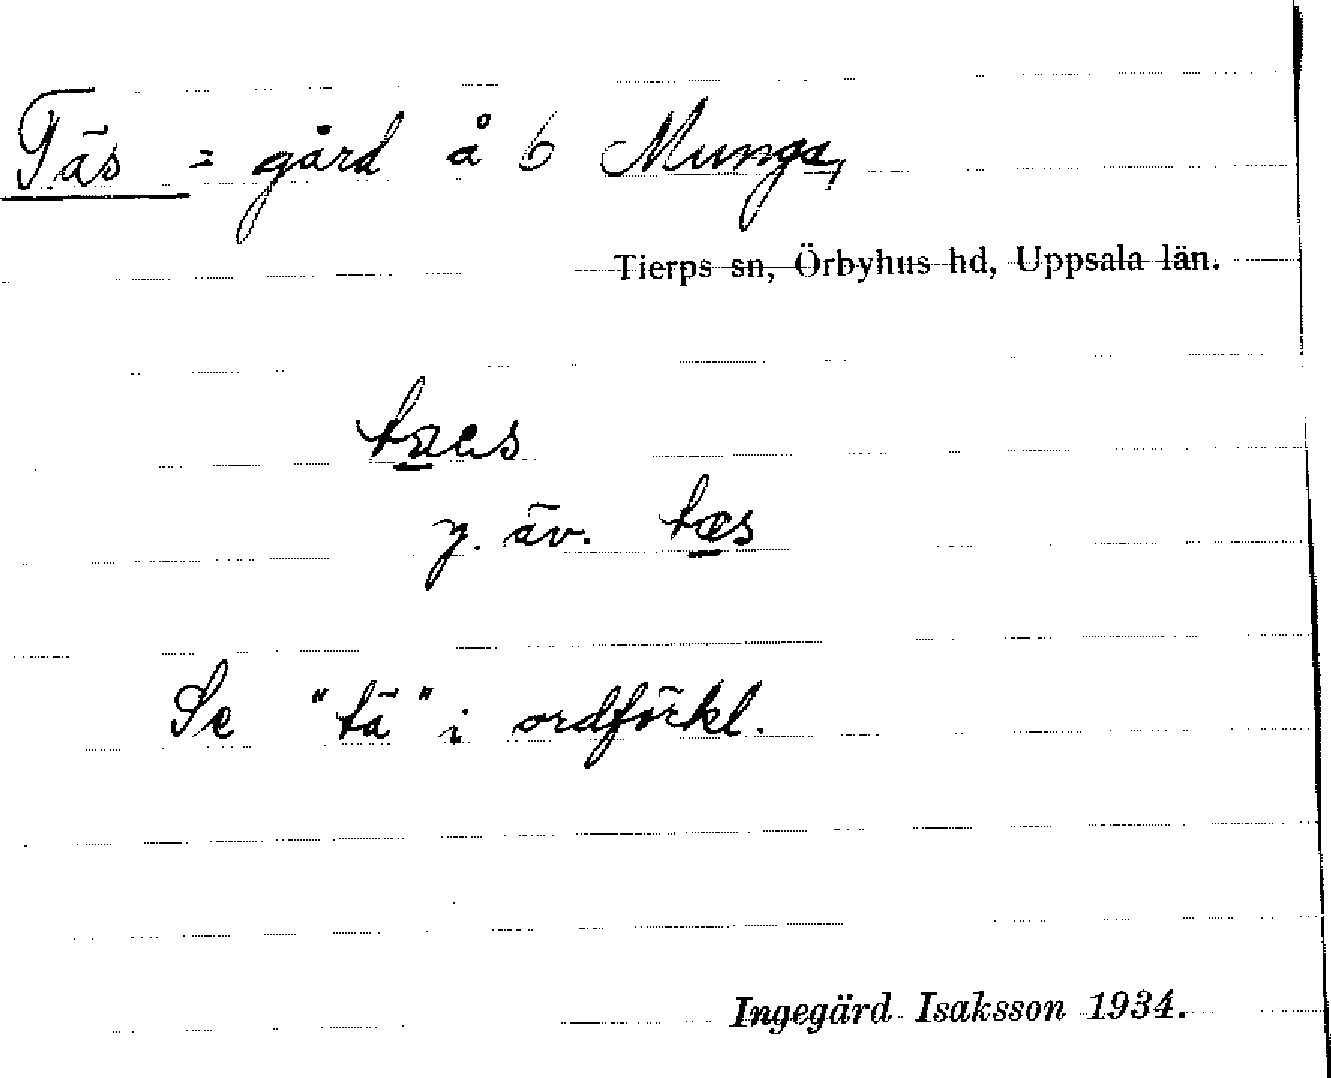 Täs = gård å 6 Munga,
Tierps sn, Örbyhus hd, Uppsala län.
y. äv. tæs
Se "tä" i ordförkl.
Ingegärd Isaksson 1934.